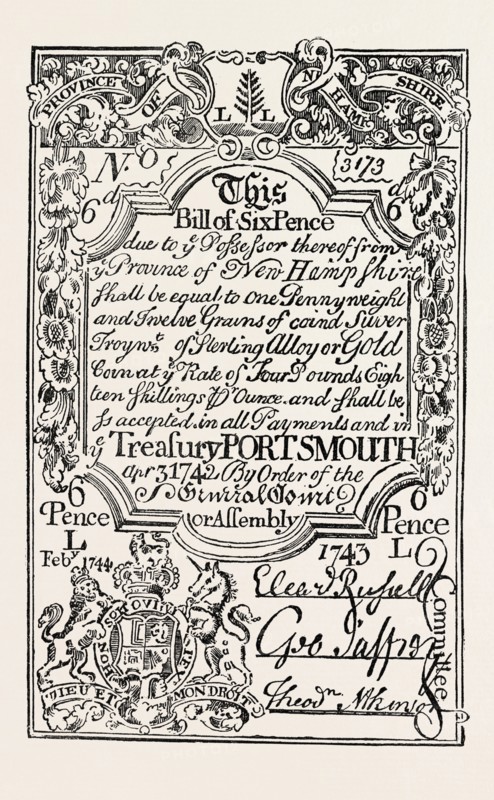 PROVINCE OF NEW HAMP SHIRE
L L
No 3173
6d 6d
This
Bill of Six Pence
due to ye Possessor thereof from
ye Province of New Hampshire
shall be equal to one Pennyweight
and Twelve Grains of coind Silver
Troy wt. of Sterling Alloy or Gold
Coin at ye Rate of Four Pounds Eigh
teen shillings Ounce. and shall be
so accepted in all Payments and in
ye Treasury PORTSMOUTH
Apr 3 1742 By Order of the
General Court
or Assembly
6 Pence L 6 Pence L
Feby. 1744 1743
HONI SOI
DIEU ET MON DROIT
Eleazr Russell
Geo Jaffrey
Theodre Atkinson
Committee